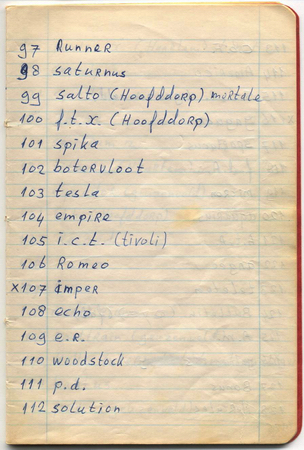 97 Runner
98 saturnus
99 salto (Hoofddorp) mortale
100 f.t.x. (Hoofddorp)
101 spika
102 botervloot
103 tesla
104 empire
105 i.c.t. (tivoli)
106 Romeo
x107 imper
108 echo
109 e.r.
110 woodstock
111 p.d.
112 solution